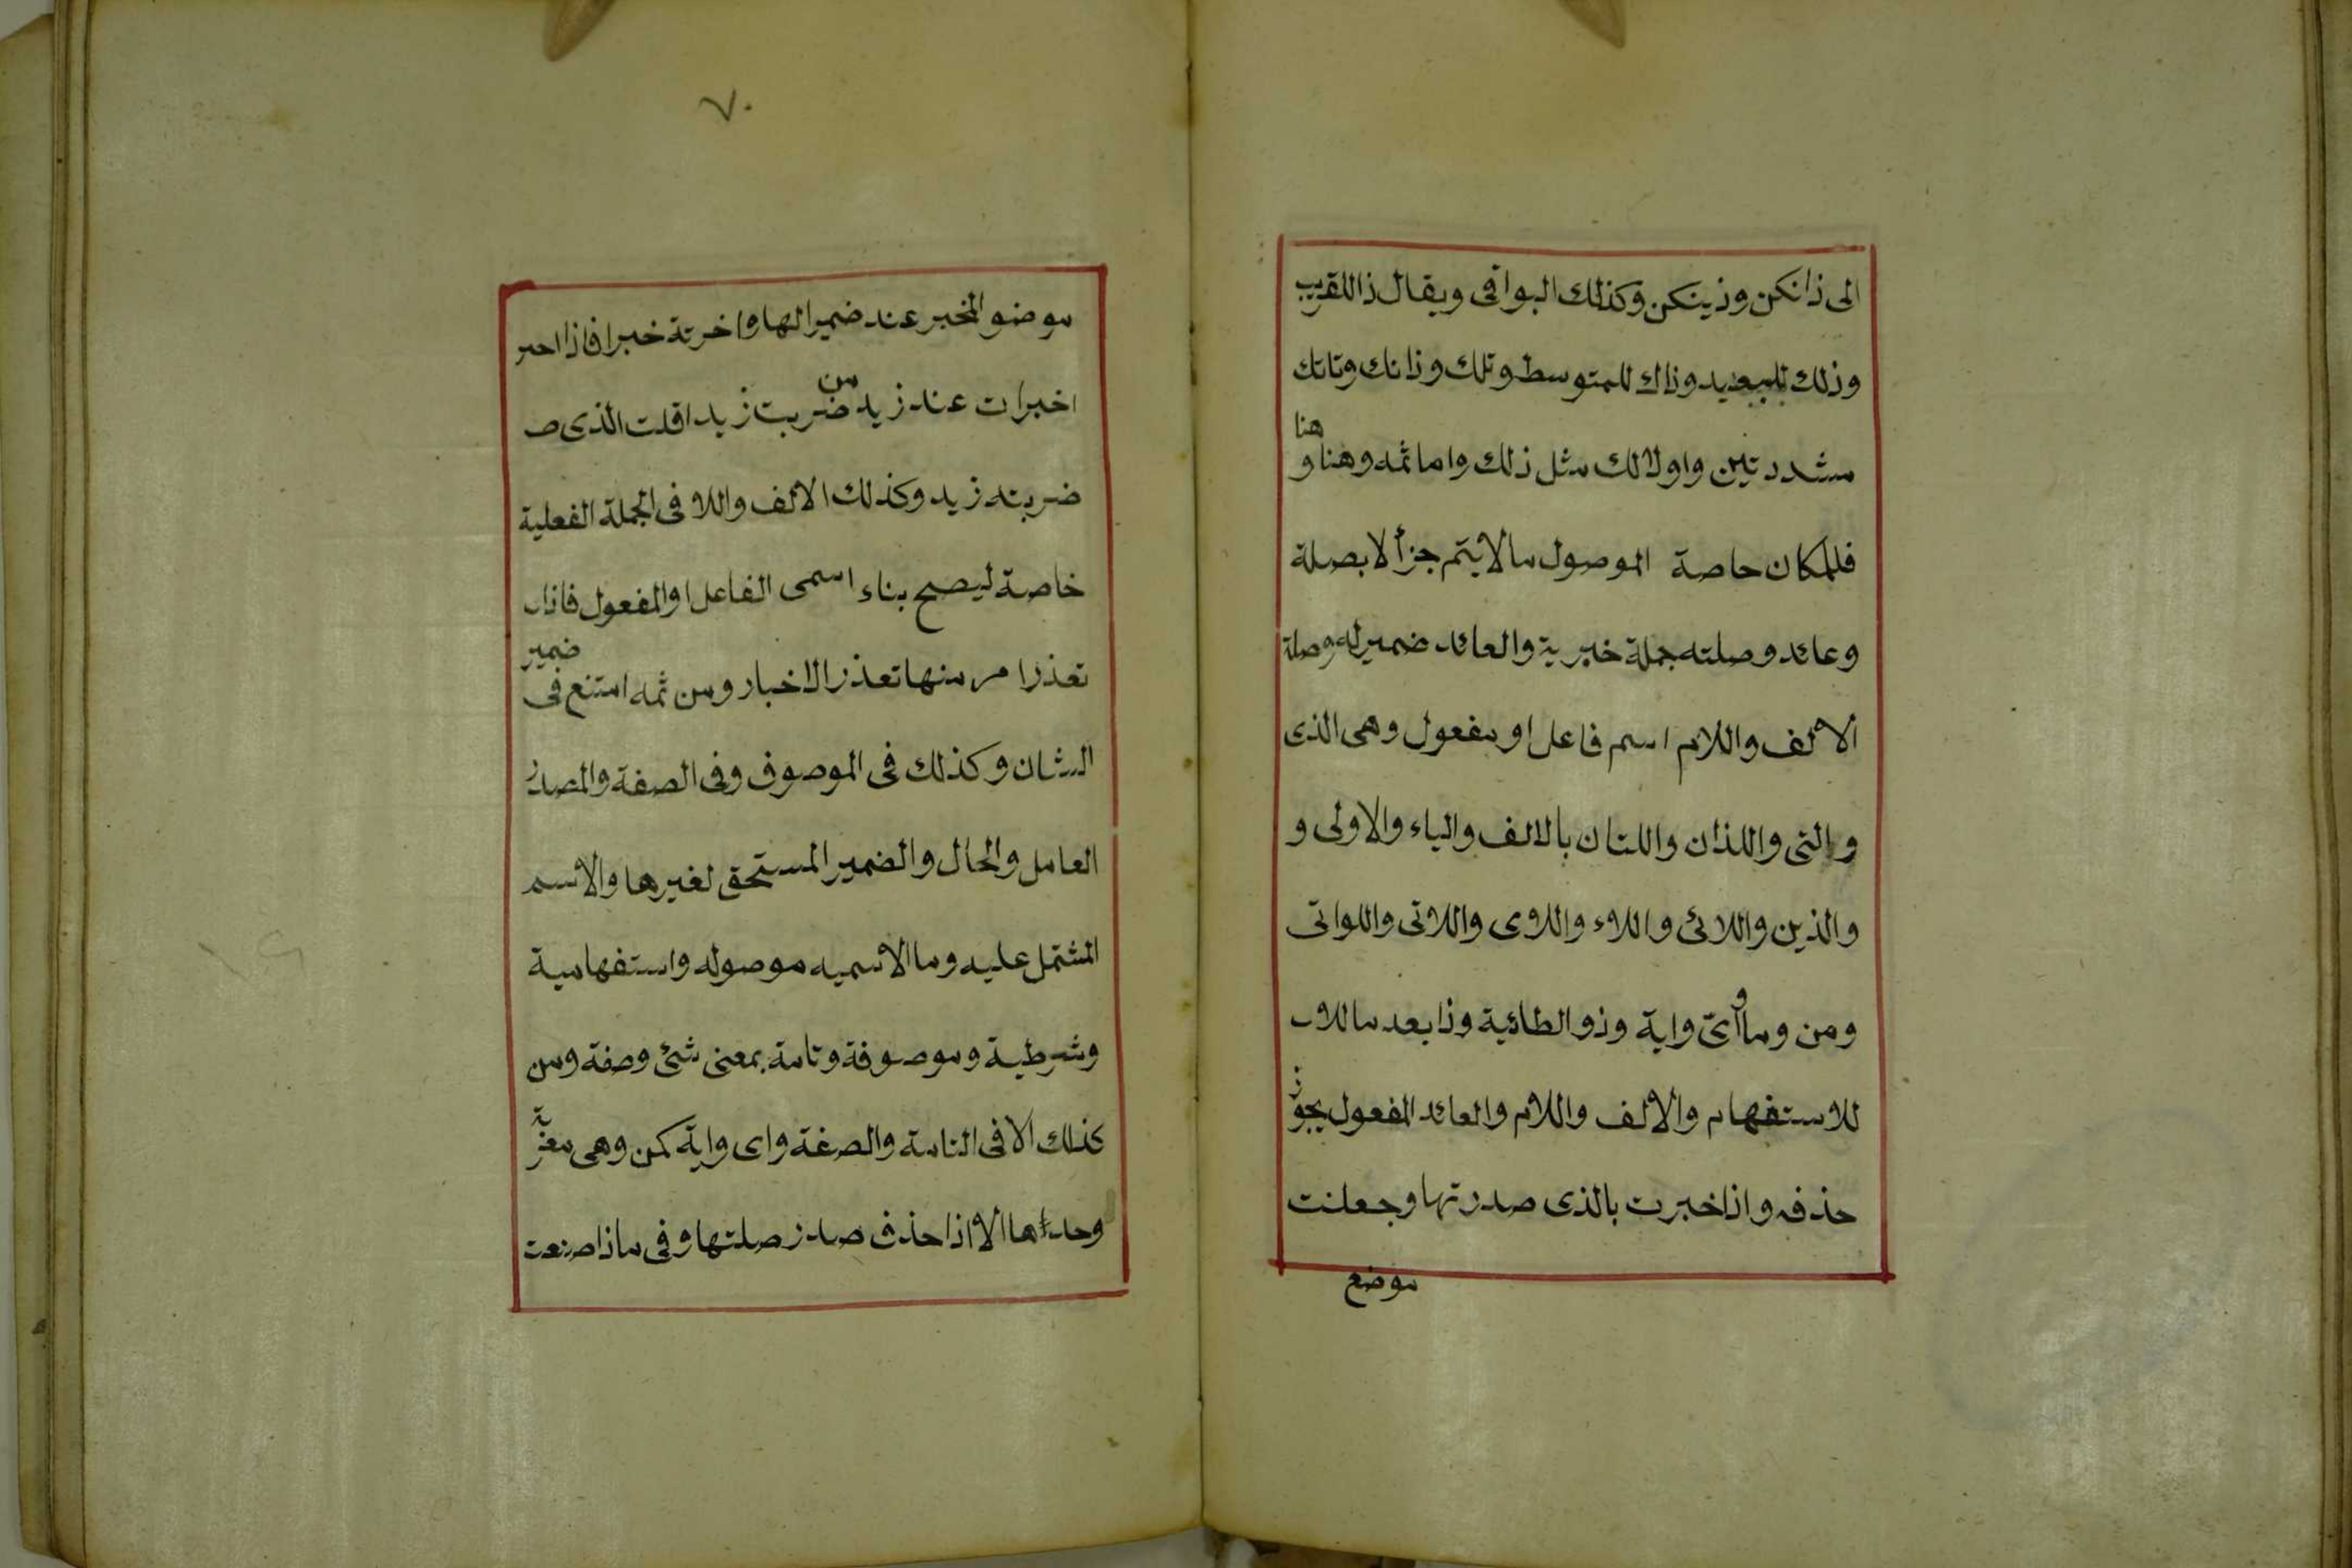 الى ذانكن وذينكن وكذلك البواقى ويقال ذا للقريب
وذلك للبعيد وذاك للمتوسط وتلك وذانك وتانك
مشددتين واولالك مثل ذلك واما ثمه وهنا و هنا
فللمكان حاصة الموصول مالا يتم جزأ لا بصلة
وعائد وصلته جملة خبرية والعائد ضمير له وصلة
الالف واللام اسم فاعل او مفعول وهى الذى
والتى واللذان واللتان بالالف والياء والاولى و
والذين واللائى واللاء واللاوى واللاتى واللواتى
ومن وما واىّ واية وذو الطائية وذا بعد ما للاب
للاستفهام والالف واللام والعائد المفعول يجوز
حذفه واذا اخبرت بالذى صدرتها وجعلنت
موضع
٧٠
موضو المخبر عند ضمير الها واخرتة خبرا فاذا احبر
اخبرات عند زيد من ضربت زيدا قلت الذى ص
ضربته زيد وكذلك الالف واللا فى الجملة الفعلية
خاصة ليصح بناء اسمى الفاعل او المفعول فاذاب
تعذر امر منها تعذر الاخبار ومن ثمه امتنع فى ضمير
الشان وكذلك فى الموصوف وفى الصفة والمصدر
العامل والحال والضمير المستحق لغيرها والاسم
المشتمل عليه وما الاسميه موصوله واستفهامية
وشرطية وموصوفة وتامة بمعنى شئ وصفة ومن
كذلك الا فى التامة والصغة واى واية كمن وهى معربّة
وحداها الا اذا حذف صدر صلتها وفى ماذا صنعت